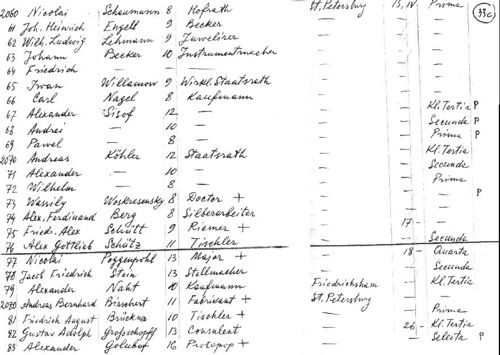 2060 Nicolai Schaumann 8 Hofrath St. Petersburg 15, IV Prima 33c
61 Joh. Heinrich Engelt 9 Becker — — —
62 Wilh. Ludwig Lehmann 9 Juwelirer — — —
63 Johann Becker 10 Instrumentmacher — — —
64 Friedrich — 8 — — — —
65 Iwan Willamow 9 Wirkl. Staatsrath — — —
66 Carl Nagel 8 Kaufmann — — —
67 Alexander Sisof 12 — — — Kl. Tertia P
68 Andrei — 10 — — — Secunda P
69 Pawel — 8 — — — Prima P
2070 Andreas Köhler 12 Staatsrath — — Kl. Tertia
71 Alexander — 10 — — — Secunda
72 Wilhelm — 8 — — — Prima
73 Wassily Woskresensky 8 Doctor + — — — P
74 Alex. Ferdinand Berg 8 Silberarbeiter — — —
75 Friedr. Alex Schütt 9 Riemer + — 17 — —
76 Alex Gottlieb Schütz 11 Tischler — — Secunda
77 Nicolai Poggenpohl 13 Major + — 18 — Quarta
78 Jacob Friedrich Stein 13 Stellmacher — — Secunda
79 Alexander Naht 10 Kaufmann Friedrichsham — Kl. Tertia
2080 Andreas Bernhard 11 Fabricant + St. Petersburg — —
81 Friedrich August Brückner 10 Tischler + — — Prima
82 Gustav Adolph Groszschopff 13 Consulent — 26 — Kl. Tertia
83 Alexander Golubof 16 Protopop + — — Selecta P